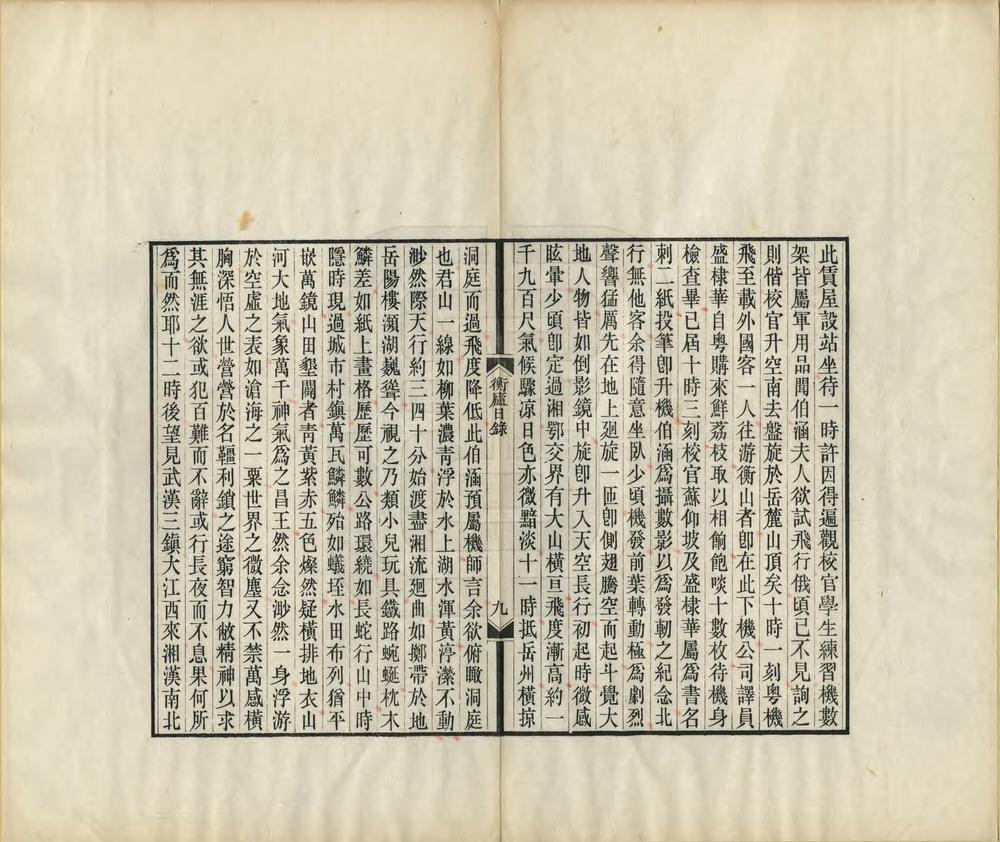 此賃屋設站坐待一時許因得遍觀校官學生練習機數
架皆屬軍用品聞伯涵夫人欲試飛行俄頃已不見詢之
則偕校官升空南去盤旋於岳麓山頂矣十時一刻粵機
飛至載外國客一人往游衡山者卽在此下機公司譯員
盛棣華自粵購來鮮荔枝取以相餉飽啖十數枚待機身
檢查畢已屆十時三刻校官蘇仰坡及盛棣華屬爲書名
刺二紙投筆卽升機伯涵爲攝數影以爲發軔之紀念北
行無他客余得隨意坐臥少頃機發前葉轉動極爲劇烈
聲響猛厲先在地上廻旋一匝卽側翅騰空而起斗覺大
地人物皆如倒影鏡中旋卽升入天空長行初起時微感
眩暈少頃卽定過湘鄂交界有大山橫亘飛度漸高約一
千九百尺氣候驟凉日色亦微黯淡十一時抵岳州橫掠
衡廬日錄
九
洞庭而過飛度降低此伯涵預屬機師言余欲俯瞰洞庭
也君山一線如柳葉濃青浮於水上湖水渾黃渟瀠不動
渺然際天行約三四十分始渡盡湘流廻曲如擲帶於地
岳陽樓瀕湖巍聳今視之乃類小兒玩具鐵路蜿蜒枕木
鱗差如紙上畫格歷歷可數公路環繞如長蛇行山中時
隱時現過城市村鎭萬瓦鱗鱗殆如蟻垤水田布列猶平
嵌萬鏡山田墾闢者青黃紫赤五色燦然疑橫排地衣山
河大地氣象萬千神氣爲之昌王然余念渺然一身浮游
於空虛之表如滄海之一粟世界之微塵又不禁萬感橫
胸深悟人世營營於名韁利鎖之途窮智力敝精神以求
其無涯之欲或犯百難而不辭或行長夜而不息果何所
爲而然耶十二時後望見武漢三鎭大江西來湘漢南北